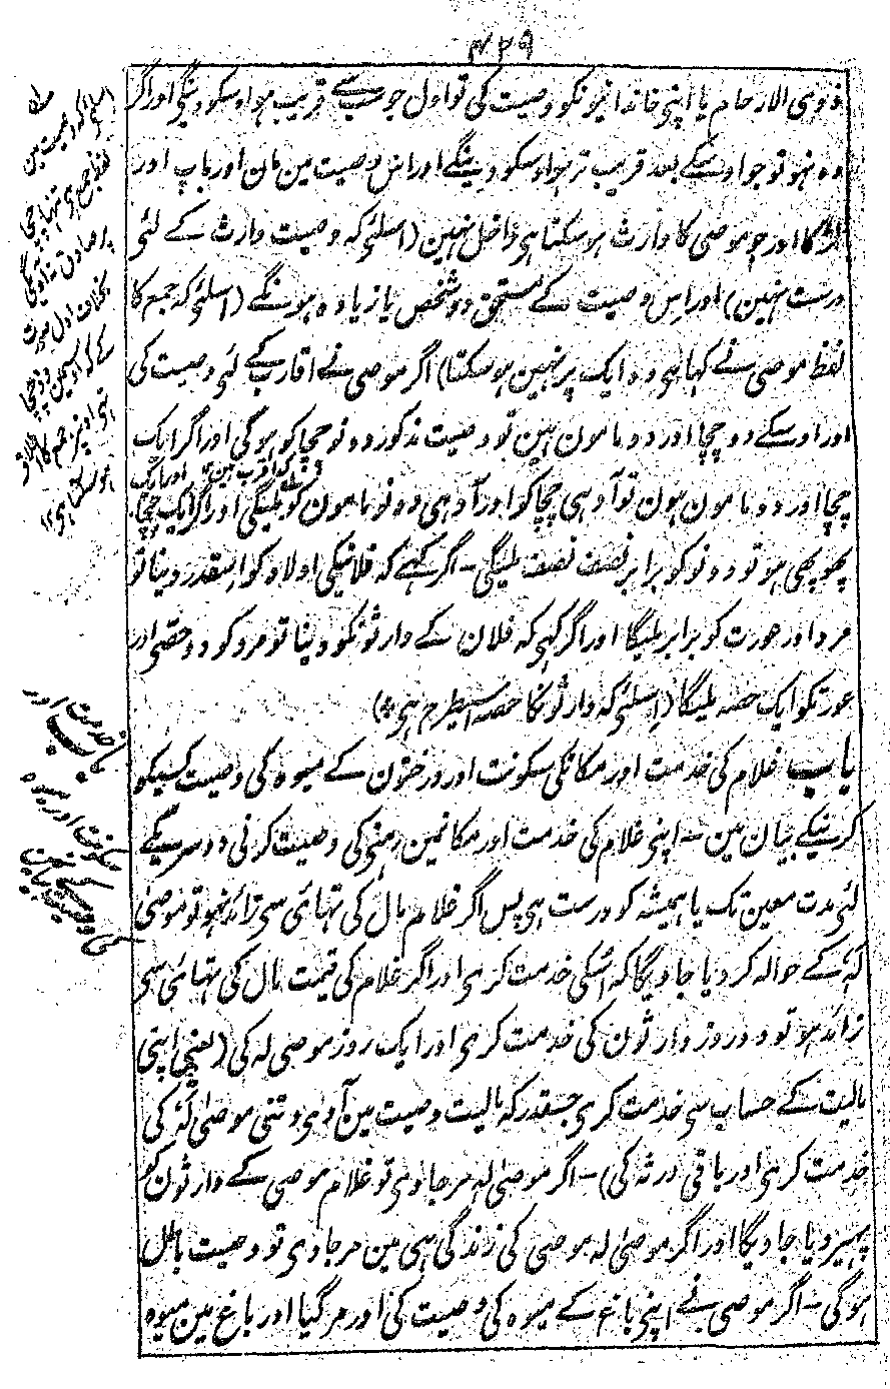 ۴۲۹
ذوی الارحام یا اپنی خاندانیونکو وصیت کی تو اول جو سب سے قریب ہو اوسکو دینگے اور اگر
وہ نہو تو جو اوسکے بعد قریب تر ہو اوسکو دینگے اور اس وصیت مین مان اور باپ اور
لڑکا اور جو موصی کا وارث ہو سکتا ہی داخل نہین (اسلئے کہ وصیت وارث کے لئی
درست نہین) اور اس وصیت کے مستحق دو شخص یا زیادہ ہونگے (اسلئے کہ جمع کا
لفظ موصی نے کہا ہی وہ ایک پر نہین ہو سکتا) اگر موصی نے اقارب کے لئی وصیت کی
اور اوسکے دو چچا اور دو مامون ہین تو وصیت مذکور دونو چچا کو ہوگی اور اگر ایک
چچا اور دو مامون ہون تو آدہی چچا کو اور آدہی دونو مامون کو ملیگی اور اگر ایک چچا
پھوپھی ہو تو دونو کو برابر نصف نصف ملیگی ۔ اگر کہے کہ فلانیکی اولاد کو اسقدر دینا تو
مرد اور عورت کو برابر ملیگا اور اگر کہی کہ فلان کے وارثونکو دینا تو مرد کو دو حصی اور
عورتکو ایک حصہ ملیگا (اسلئے کہ وارثونکا حصہ اسیطرح ہی)
باب غلام کی خدمت اور مکانکی سکونت اور درختون کے میوہ کی وصیت کسیکو
کرنیکے بیان مین ۔ اپنی غلام کی خدمت اور مکانمین رہنی کی وصیت کرنی دوسریکے
لئی مدت معین تک یا ہمیشہ کو درست ہی پس اگر غلام مال کی تہائی سی زائد نہو تو موصیٰ
لہ کے حوالہ کر دیا جاویگا کہ اسکی خدمت کری اور اگر غلام کی قیمت مال کی تہائی سی
زائد ہو تو دو روز وارثون کی خدمت کری اور ایک روز موصی لہ کی (یعنی اپنی
مالیت کے حساب سی خدمت کری جسقدر کہ مالیت وصیت مین آوی وتنی موصیٰ لہ کی
خدمت کری اور باقی ورثہ کی) ۔ اگر موصیٰ لہ مر جاوی تو غلام موصی کے وارثون کو
پہیر دیا جاویگا اور اگر موصیٰ لہ موصی کی زندگی ہی مین مر جاوی تو وصیت باطل
ہوگی ۔ اگر موصی نے اپنی باغ کے میوہ کی وصیت کی اور مر گیا اور باغ مین میوہ
اسلئے کہ وصیت مین
لفظ جمع ہی تنہا چچا
پر صادق نہ آویگی
بخلاف اول صورت
کے کہ اوسمین دو چچا
ہی اونپر جمع کا اطلاق
ہو سکتا ہی ۱۲
باب خدمت اور
سکونت اور میوہ